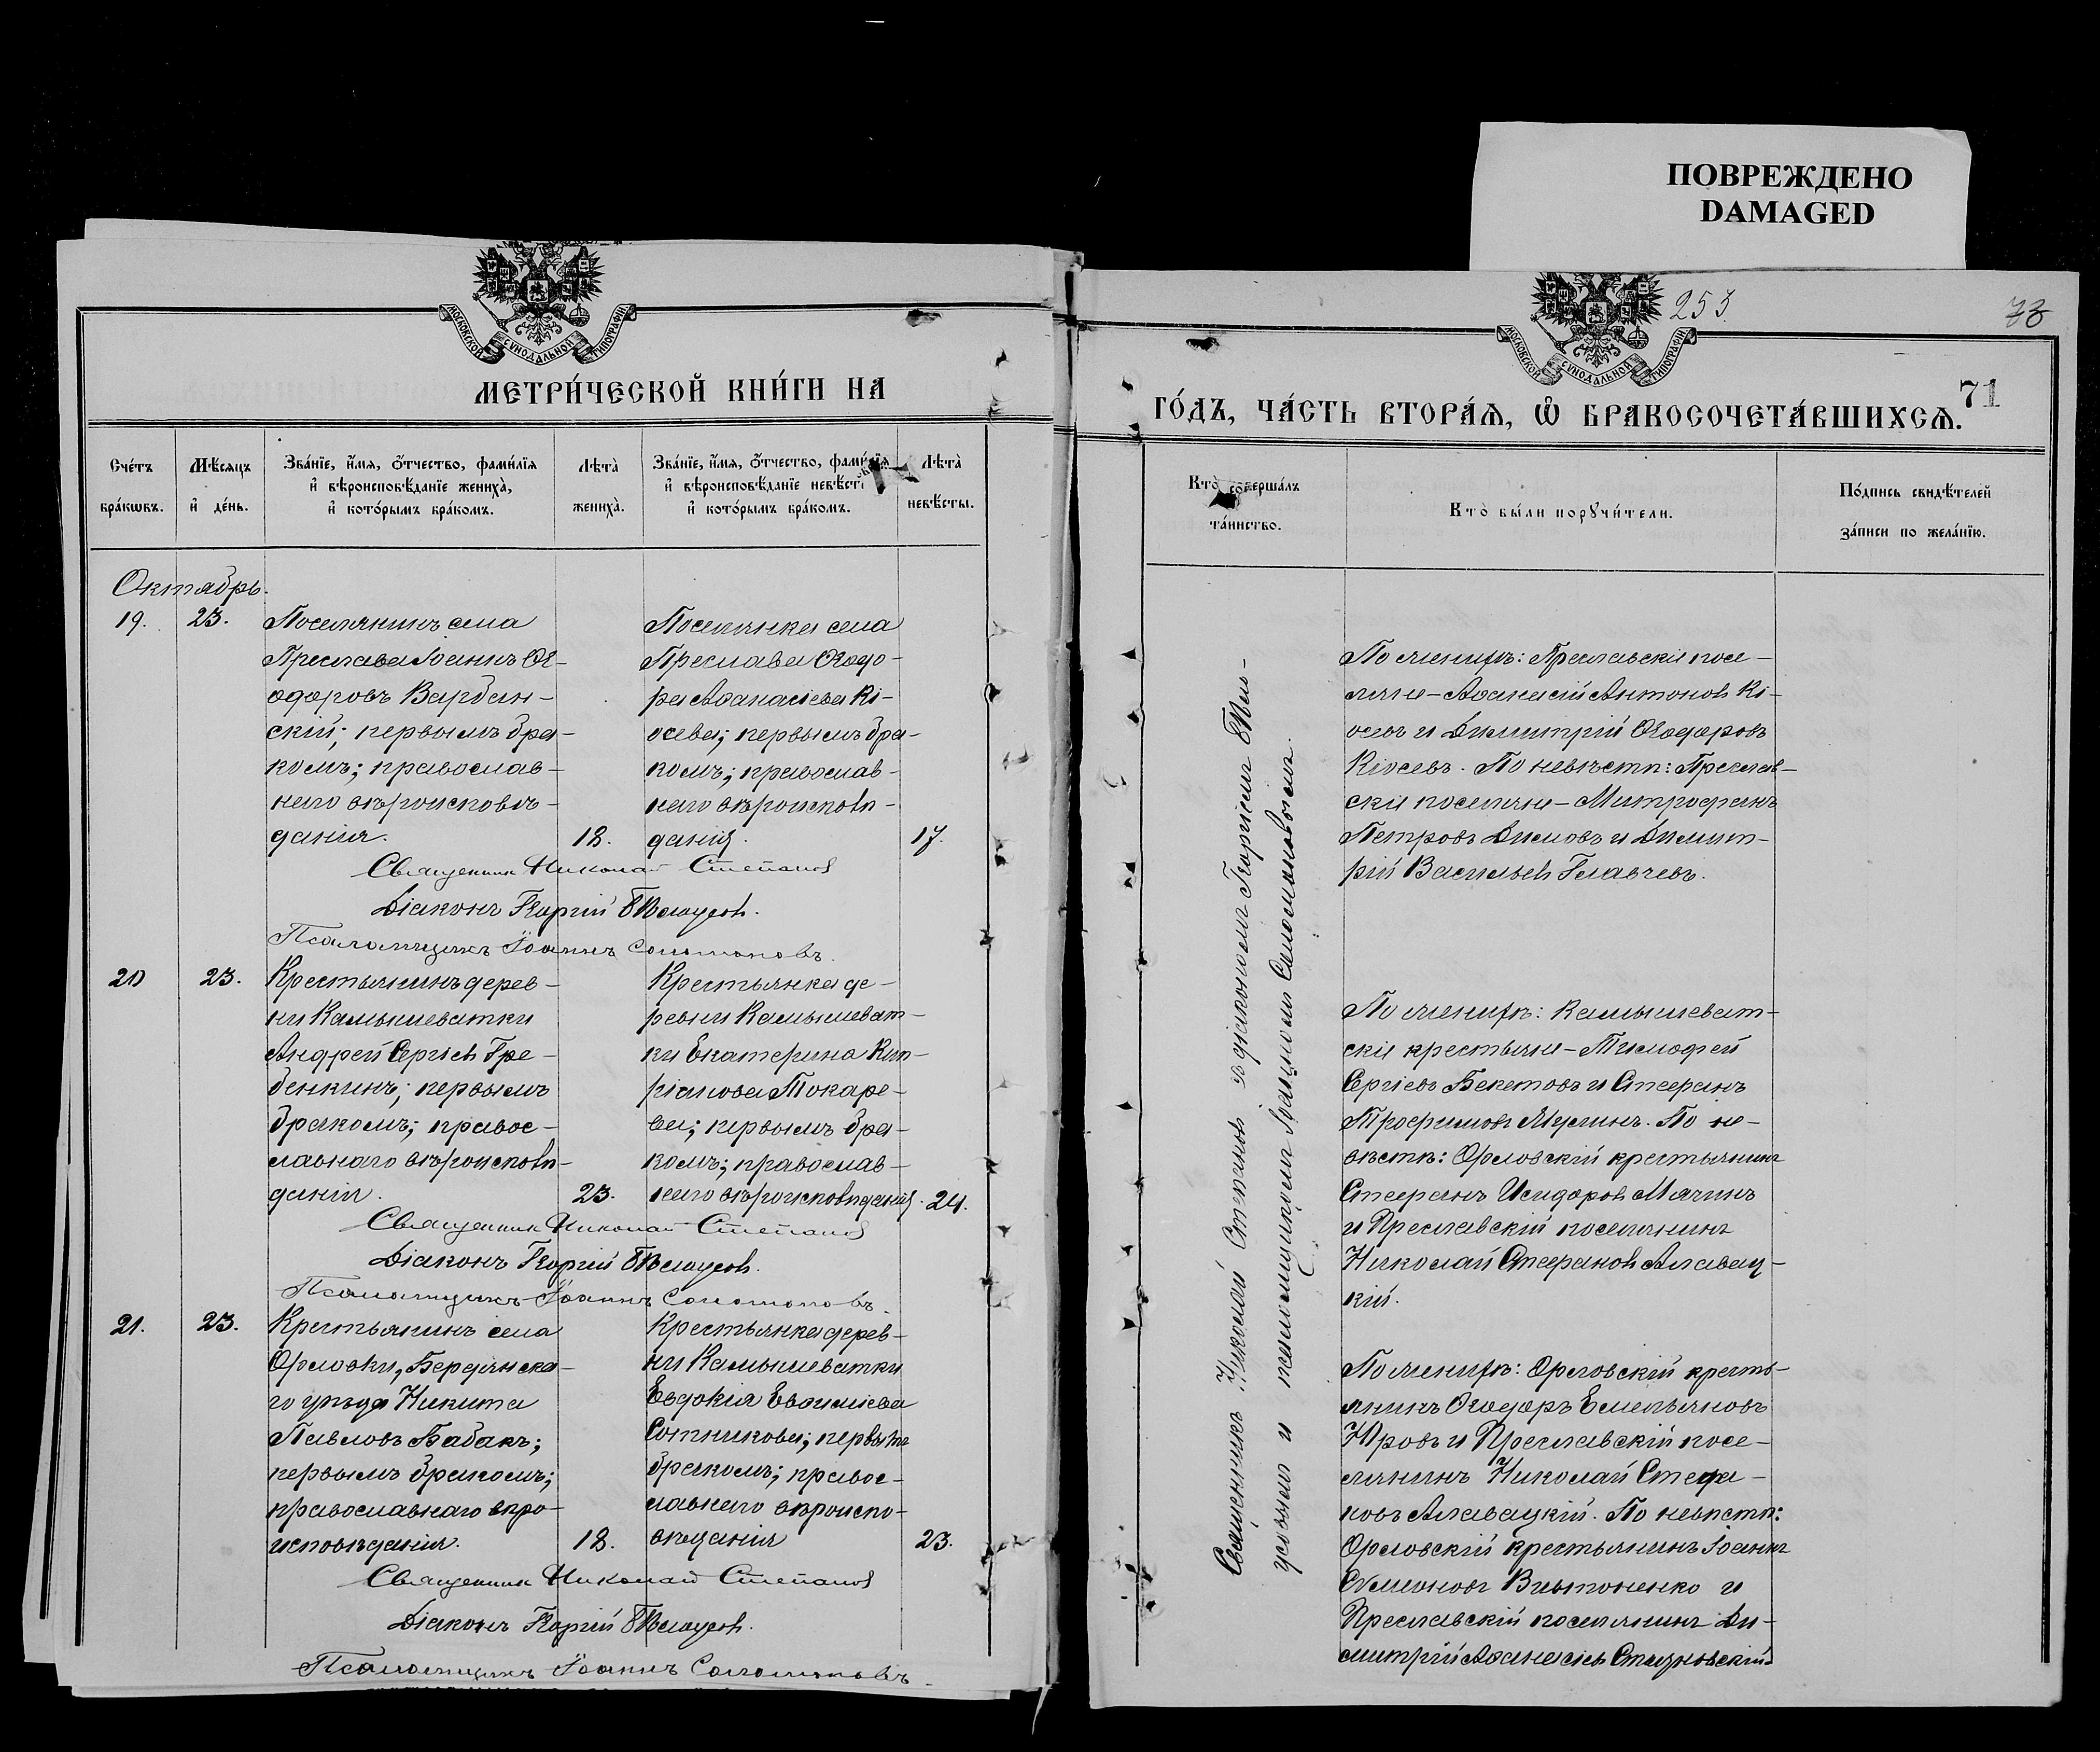 ПОВРЕЖДЕНО
DAMAGED
МОСКОВСКОЙ СѴНОДАЛЬНОЙ ТИПОГРАФІИ
МЕТРИ́ЧЕСКОЙ КНИ́ГИ НА
Сче́тъ бра́кωвъ.
Мѣ́сяцъ и҆ де́нь.
Зва́нїе, и҆́мя, ѻ҆́тчество, фами́лїя
и҆ вѣроисповѣ́данїе жениха̀,
и҆ кото́рымъ бра́комъ.
Лѣта̀ жениха̀.
Зва́нїе, и҆́мя, ѻ҆́тчество, фами́лїя
и҆ вѣроисповѣ́данїе невѣ́сты
и҆ кото́рымъ бра́комъ.
Лѣта̀ невѣ́сты.
Октябрь.
19. 23.
Поселянинъ села
Преслава Іоаннъ Ѳе-
одоровъ Варбан-
скій; первымъ бра-
комъ; православ-
наго вѣроисповѣ-
данія. 18.
Поселянка села
Преслава Ѳеодо-
ра Аѳанасіева Кі-
осева; первымъ бра-
комъ; православ-
наго вѣроисповѣ-
данія. 17.
Священникъ Николай Степановъ
Діаконъ Георгій Бѣлоусовъ.
Псаломщикъ Іоаннъ Соломоновъ.
20 23.
Крестьянинъ дерев-
ни Камышеватки
Андрей Сергіевъ Гре-
бенкинъ; первымъ
бракомъ; правос-
лавнаго вѣроисповѣ-
данія. 23.
Крестьянка де-
ревни Камышеват-
ки Екатерина Кип-
ріанова Токаре-
ва; первымъ бра-
комъ; православ-
наго вѣроисповѣданія. 24.
Священникъ Николай Степановъ
Діаконъ Георгій Бѣлоусовъ.
Псаломщикъ Іоаннъ Соломоновъ.
21. 23.
Крестьянинъ села
Орловки, Бердянска-
го уѣзда Никита
Павловъ Бабакъ;
первымъ бракомъ;
православнаго вѣро-
исповѣданія. 18.
Крестьянка дерев-
ни Камышеватки
Евдокія Евѳиміева
Сотникова; первымъ
бракомъ; правос-
лавнаго вѣроиспо-
вѣданія 23.
Священникъ Николай Степановъ
Діаконъ Георгій Бѣлоусовъ.
Псаломщикъ Іоаннъ Соломоновъ.
253
73
МОСКОВСКОЙ СѴНОДАЛЬНОЙ ТИПОГРАФІИ
71
ГО́ДЪ, ЧА́СТЬ ВТОРА́Я, Ѡ҆ БРАКОСОЧЕТА́ВШИХСЯ.
Кто̀ соверша́лъ та́инство.
Кто̀ бы́ли порꙋчи́тели.
По́дпись свидѣ́телей за́писи по жела́нїю.
Священникъ Николай Степановъ съ діакономъ Георгіемъ Бѣло-
усовымъ и псаломщикомъ Іоанномъ Соломоновымъ.
По женихѣ: Преславскіе посе-
ляне - Аѳанасій Антоновъ Кі-
осевъ и Димитрій Ѳеодоровъ
Кіосевъ. По невѣстѣ: Преслав-
скіе поселяне - Митрофанъ
Петровъ Димовъ и Димит-
рій Васильевъ Главчевъ.
По женихѣ: Камышеват-
скіе крестьяне - Тимофей
Сергіевъ Бекетовъ и Стефанъ
Трофимовъ По не-
вѣстѣ: Орловскій крестьянинъ
Стефанъ Исидоровъ Мячинъ
и Преславскій поселянинъ
Николай Стефановъ Алавац-
кій.
По женихѣ: Орловскій кресть-
янинъ Ѳеодоръ Емельяновъ
и Преславскій посе-
лянинъ Николай Стефа-
новъ Алавацкій. По невѣстѣ:
Орловскій крестьянинъ Іоаннъ
Сѵмеоновъ и
Преславскій поселянинъ Ди-
митрій Аѳанасьевъ